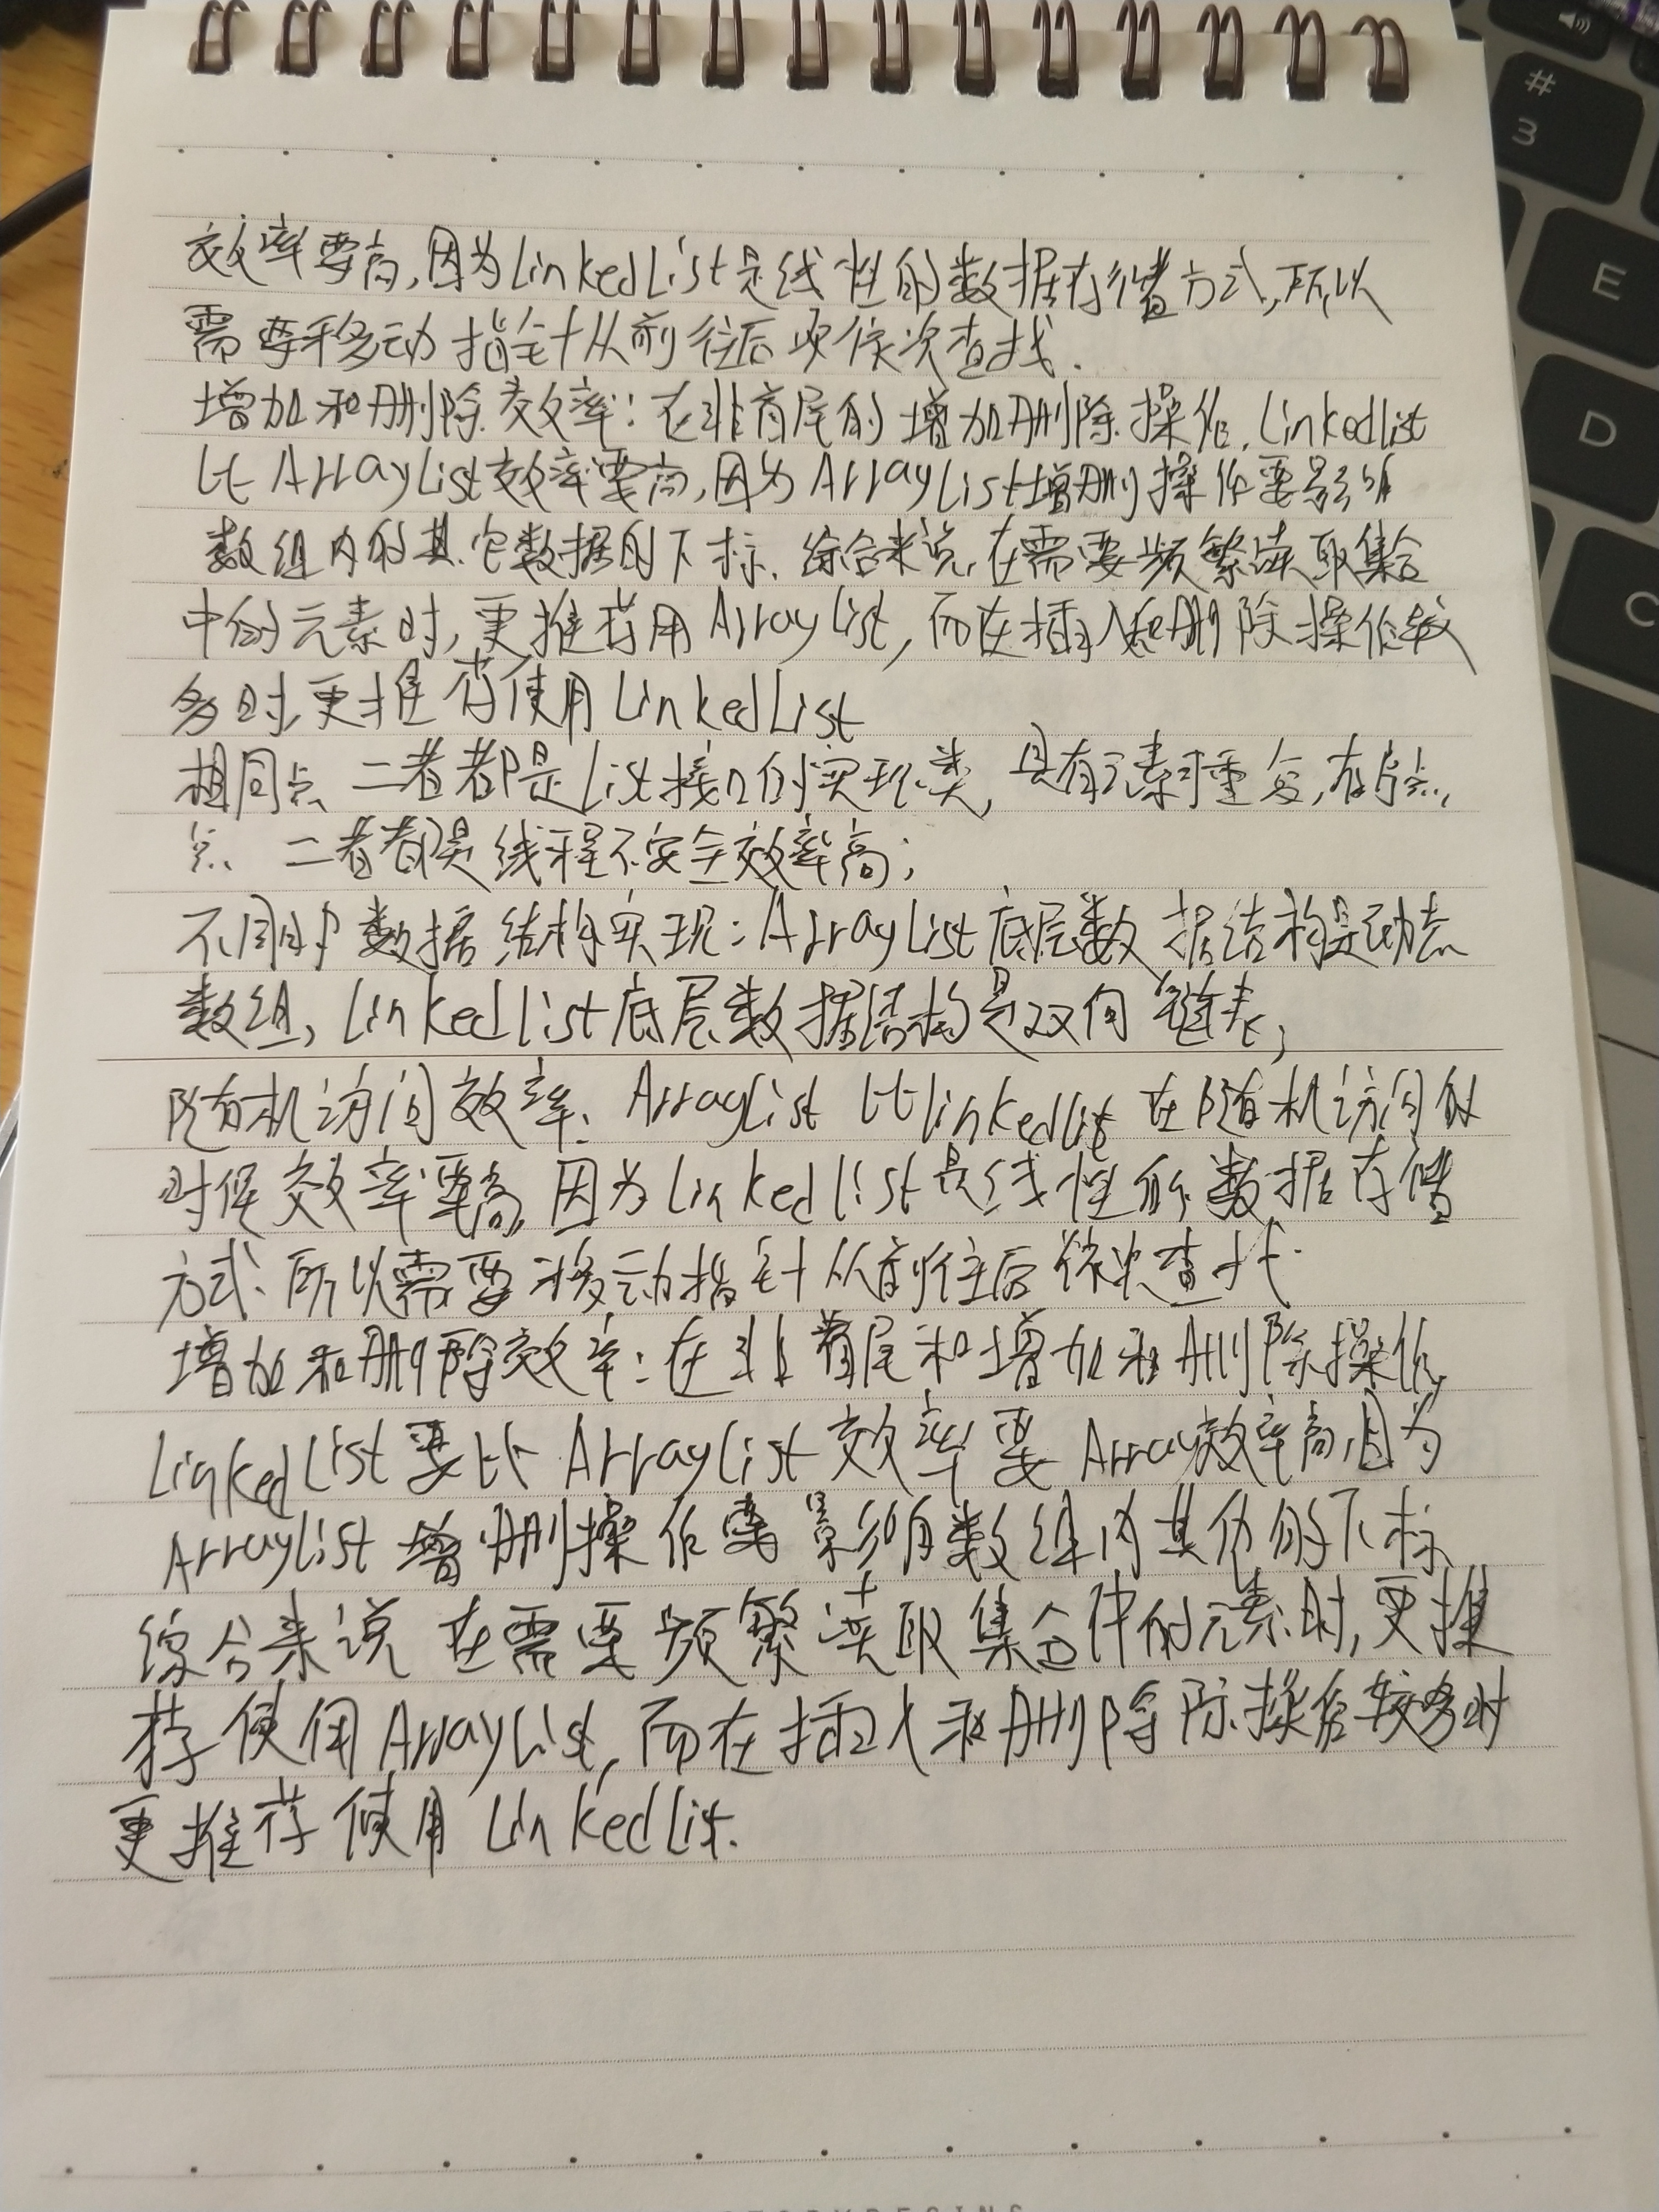 效率要高,因为LinkedList是线性的数据存储方式,所以
需要移动指针从前往后 依次查找.
增加和删除效率:在非首尾的增加删除操作,Linkedlist
比 ArrayList效率要高,因为 ArrayList增删操作要影响
数组内的其它数据的下标,综合来说,在需要频繁读取集合
中的元素时,更推荐用 ArrayList,而在插入和删除操作较
多时,更推荐使用 LinkedList
相同点 二者都是List接口的实现类,具有元素可重复,有序点,
点 二者都是线程不安全效率高;
不同的 数据结构实现:ArrayList底层数据结构是动态
数组,linkedlist底层数据结构是双向链表;
随机访问效率:ArrayList 比linkedlist 在随机访问的
时候效率要高,因为linkedlist是线性的数据存储
方式、所以需要移动指针从前往后依次查找.
增加和删除效率:在非首尾和增加和删除操作,
LinkedList要比 ArrayList效率要 Array效率高,因为
ArrayList 增删操作要影响数组内其他的下标
综合来说 在需要频繁读取集合中的元素时,更推
荐使用ArrayList,而在插入和删除除操作较多时
更推荐使用 LinkedList.
3
E
D
C